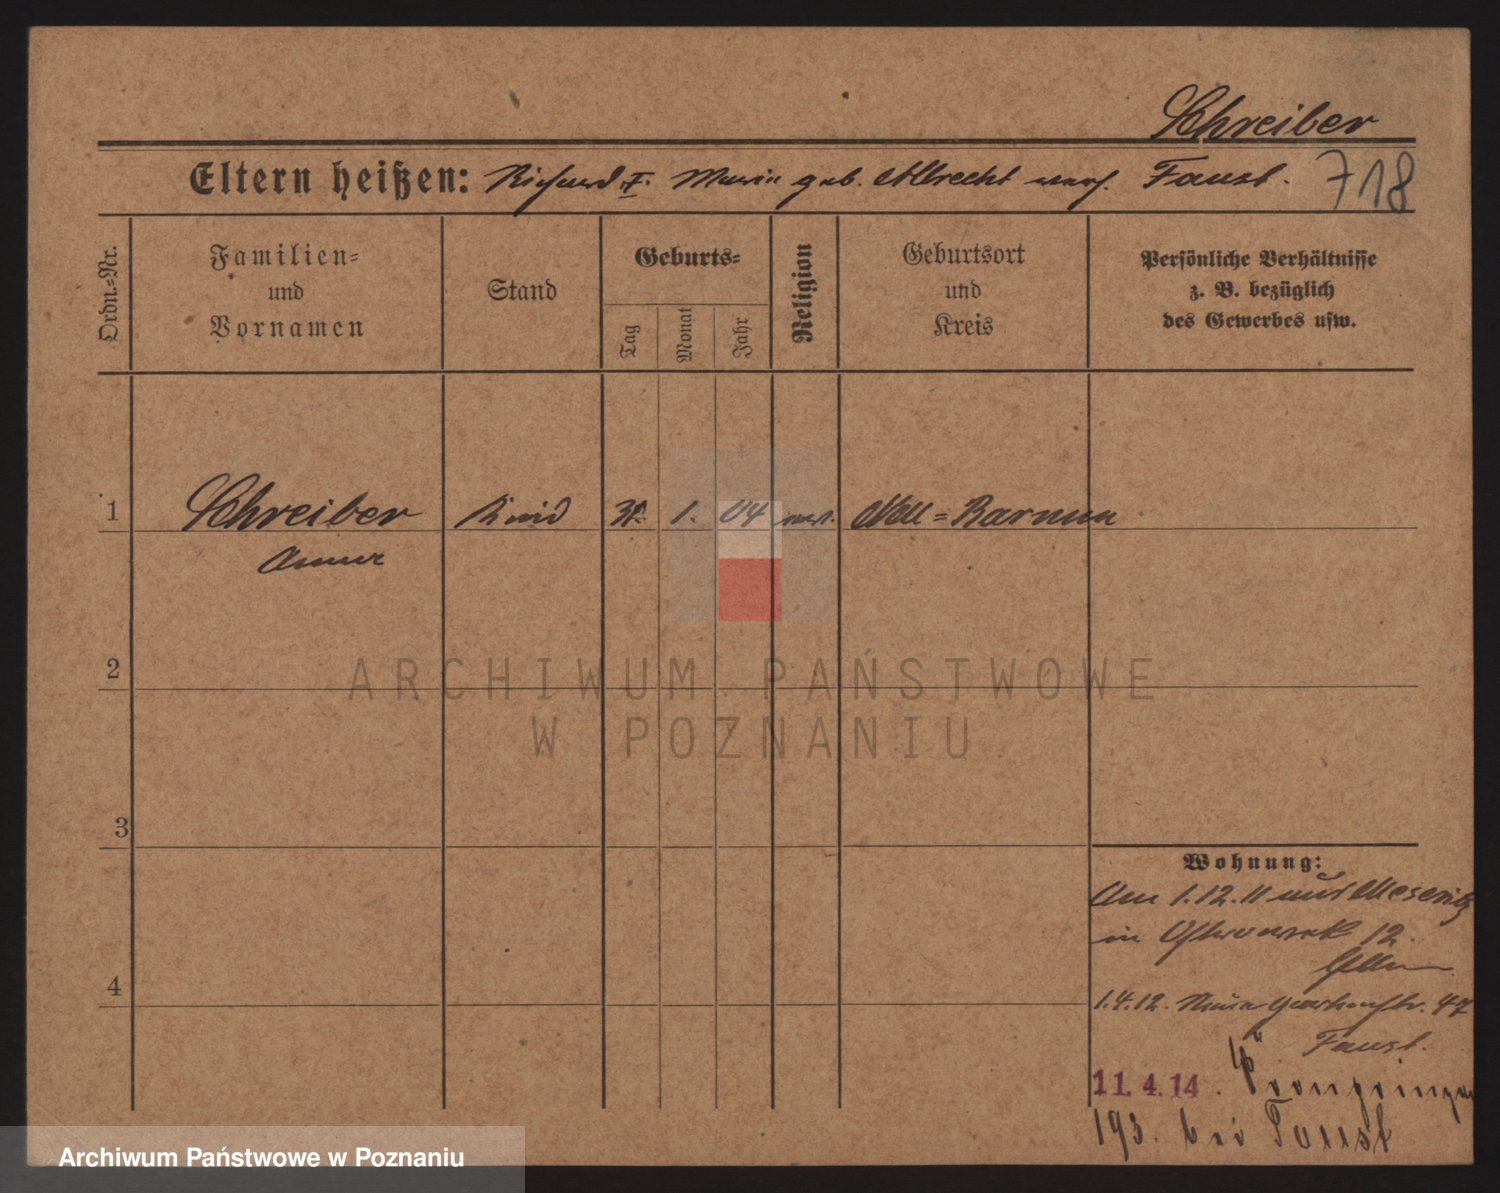 Schreiber
Eltern heißen: Richard u. Marie geb. Albrecht verh. Faust.
718
Ordn.-Nr.
Familien-
und
Vornamen
Stand
Geburts-
Tag
Monat
Jahr
Religion
Geburtsort
und
Kreis
Persönliche Verhältnisse
z. B. bezüglich
des Gewerbes usw.
1
Schreiber
Kind
31.
1.
04
Barnim
2
ARCHIWUM PAŃSTWOWE
W POZNANIU
3
Wohnung:
1.12.11 aus Meseritz
in 12.
4
1.4.12. Neue Gartenstr. 47
Faust.
11. 4. 14. Kronprinzen
193. bei Faust
Archiwum Państwowe w Poznaniu